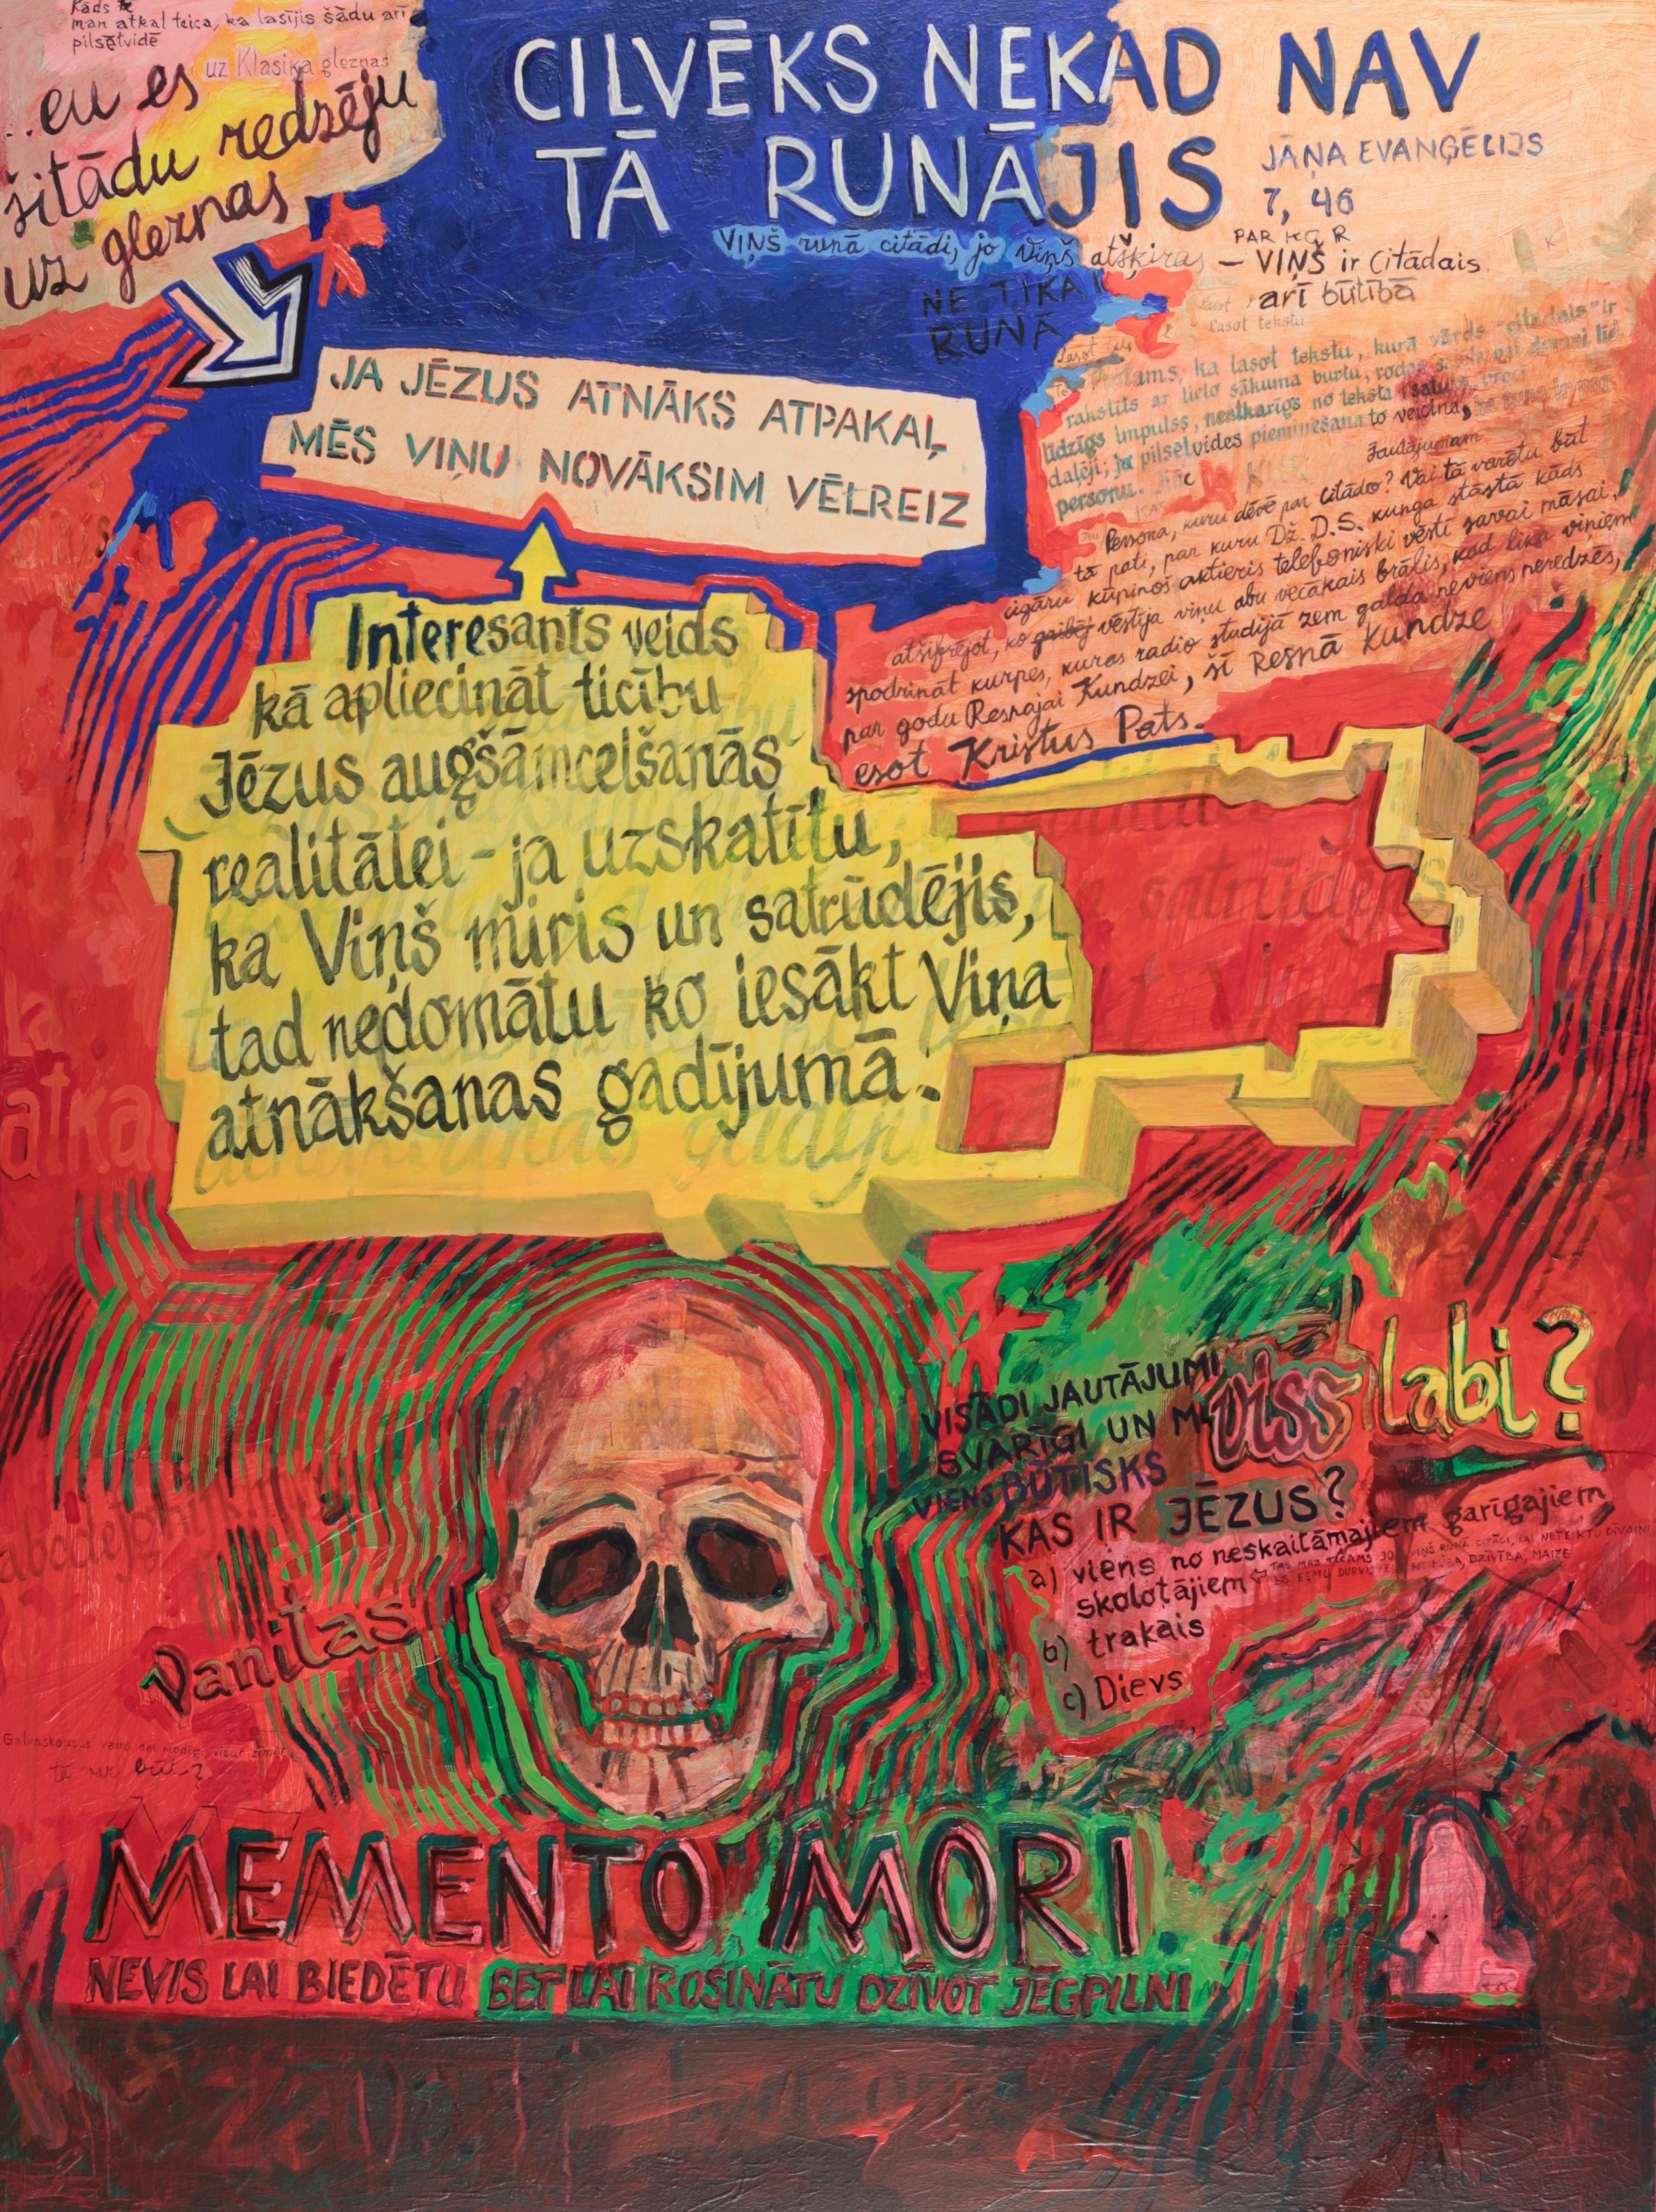 Kāds
man atkal teica, ka lasījis šādu arī
pilsētvidē
uz Klasiķa gleznas
..eu es
šitādu redzēju
uz gleznas
CILVĒKS NEKAD NAV
TĀ RUNĀJIS
JĀŅA EVAŅĢĒLIJS
7, 46
VIŅŠ runā citādi, jo Viņš atšķiras – VIŅŠ ir Citādais
NE TIKAI
RUNĀ
arī būtībā
Lasot tekstu
ka lasot tekstu, kurā vārds "citādais" ir
rakstīts ar lielo sākuma burtu, rodas
līdzīgs impulss, neatkarīgs no teksta satura
daļēji, ja pilsētvides pieminēšana to veicina,
personu.
Jautājumam
Persona, kuru dēvē par Citādo? Vai tā varētu būt
tā pati, par kuru Dž. D. S. kunga stāstā kāds
cigāru kūpinošs aktieris telefoniski vēstī savai māsai,
atšifrējot, ko gribēj vēstīja viņu abu vecākais brālis, kad lika viņiem
spodrināt kurpes, kuras radio studijā zem galda neviens neredzēs,
par godu Resnajai Kundzei, šī Resnā Kundze
esot Kristus Pats.
JA JĒZUS ATNĀKS ATPAKAĻ
MĒS VIŅU NOVĀKSIM VĒLREIZ
Interesants veids
kā apliecināt ticību
Jēzus augšāmcelšanās
realitātei - ja uzskatītu,
ka Viņš miris un satrūdējis,
tad nedomātu ko iesākt Viņa
atnākšanas gadījumā.
atkal
viss labi?
VISĀDI JAUTĀJUMI
SVARĪGI UN
VIENS BŪTISKS
KAS IR JĒZUS?
a) viens no neskaitāmajiem garīgajiem
skolotājiem
b) trakais
c) Dievs
Vanitas
MEMENTO MORI
NEVIS LAI BIEDĒTU BET LAI ROSINĀTU DZĪVOT JĒGPILNI